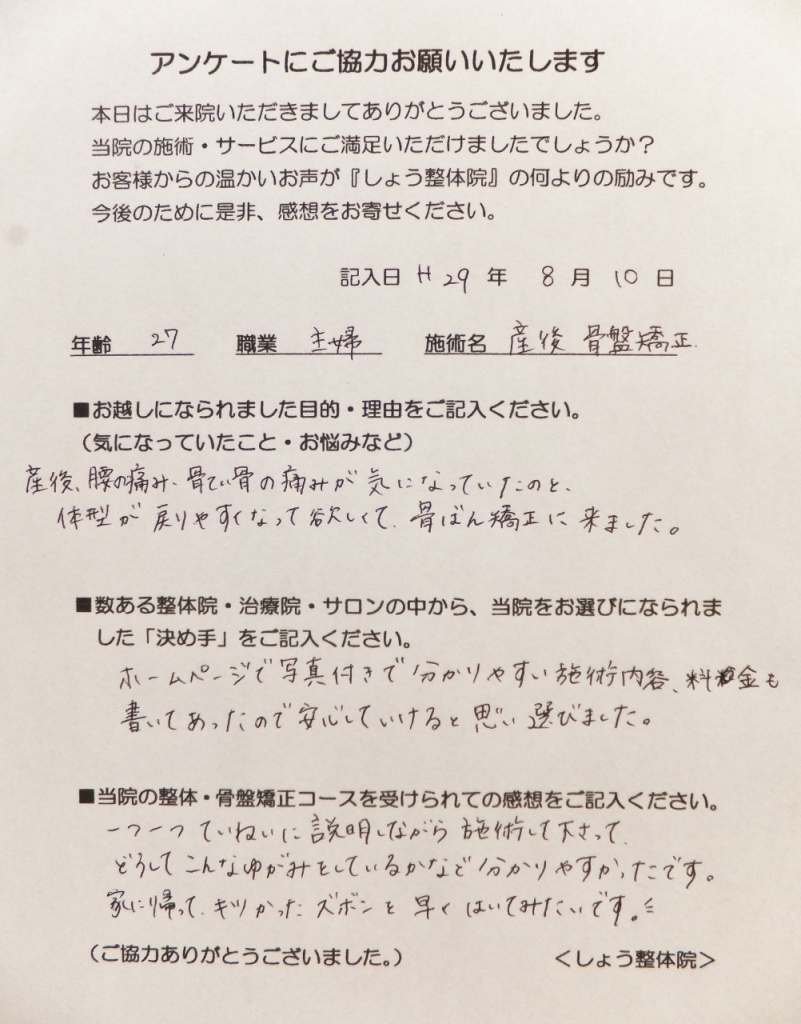 アンケートにご協力お願いいたします
本日はご来院いただきましてありがとうございました。
当院の施術・サービスにご満足いただけましたでしょうか？
お客様からの温かいお声が『しょう整体院』の何よりの励みです。
今後のために是非、感想をお寄せください。
記入日 H29 年 8 月 10 日
年齢 27 職業 主婦 施術名 産後 骨盤矯正
■お越しになられました目的・理由をご記入ください。
（気になっていたこと・お悩みなど）
産後、腰の痛み、骨てい骨の痛みが気になっていたのと、
体型が戻りやすくなって欲しくて、骨ばん矯正に来ました。
■数ある整体院・治療院・サロンの中から、当院をお選びになられま
した「決め手」をご記入ください。
ホームページで写真付きで分かりやすい施術内容、料金も
書いてあったので安心していけると思い選びました。
■当院の整体・骨盤矯正コースを受けられての感想をご記入ください。
一つ一つていねいに説明しながら施術して下さって、
どうしてこんなゆがみをしているかなど分かりやすかったです。
家に帰って、キツかったズボンを早くはいてみたいです。
（ご協力ありがとうございました。） ＜しょう整体院＞